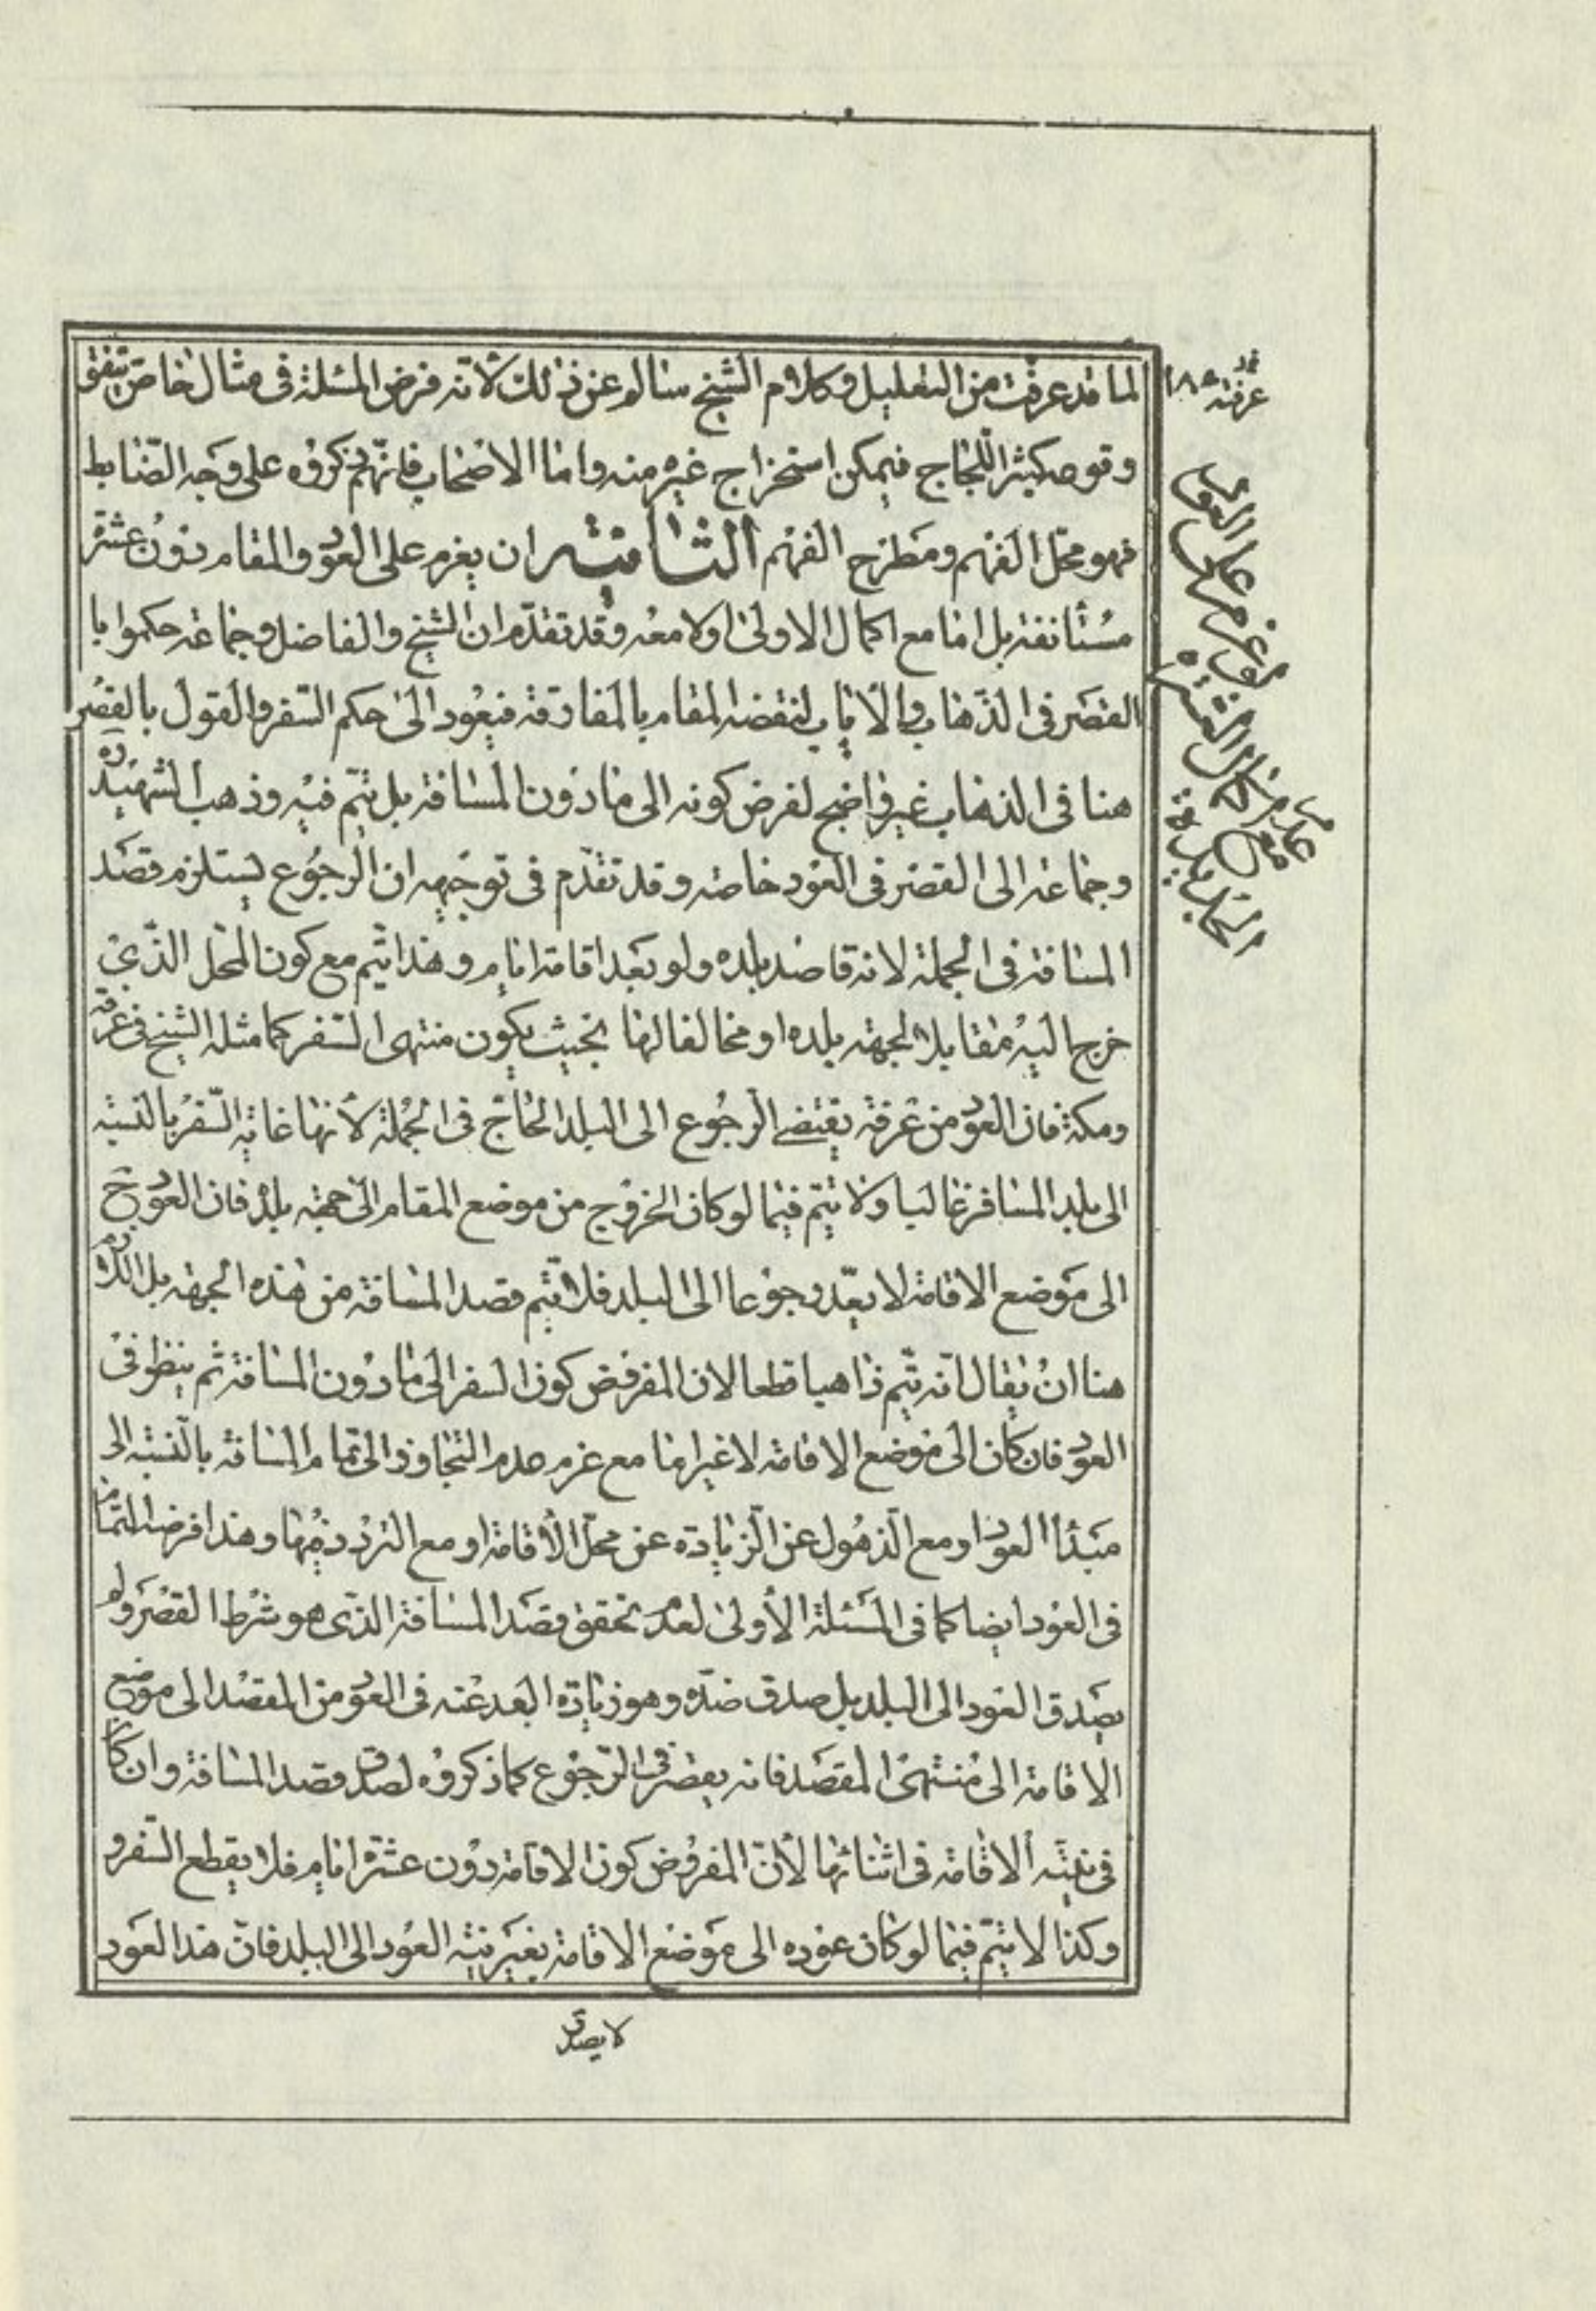 لما قد عرفت من التعليل وكلام الشيخ سالم عن ذلك لانه فرض المسئلة فى مثال خاص يتفق
وقوعه كثيرا للحاج فيمكن استخراج غيره منه واما الاصحاب فانهم ذكروه على وجه الضابط
فهو محل الفهم ومطرح الفهم الثامنة ان يعزم على العود والمقام دون عشرة
مستأنفة بل اما مع اكمال الاولى اولا معه وقد تقدم ان الشيخ والفاضل وجماعة حكموا با
القصر فى الذهاب والاياب لنقضه المقام بالمفارقة فيعود الى حكم السفر والقول بالقصر
هنا فى الذهاب غير واضح لفرض كونه الى ما دون المسافة بل يتم فيه وذهب الشهيد ره
وجماعة الى القصر فى العود خاصة وقد تقدم فى توجيهه ان الرجوع يستلزم قصد
المسافة فى الجملة لانه قاصد بلده ولو بعد اقامة ايام وهذا يتم مع كون المحل الذى
خرج اليه مقابلا لجهة بلده او مخالفا لها بحيث يكون منتهى السفر كما مثله الشيخ فى عرفة
ومكة فان العود من عرفة يقتضى الرجوع الى البلد الحاج فى الجملة لانها غاية السفر بالنسبة
الى بلد المسافر غالبا ولا يتم فيما لو كان الخروج من موضع المقام الى جهة بلده فان العود ح
الى موضع الاقامة لا يعد رجوعا الى البلد فلا يتم قصد المسافة من هذه الجهة بل اللازم
هنا ان يقال انه يتم ذاهبا قطعا لان المفروض كون السفر الى ما دون المسافة ثم ينظر فى
العود فان كان الى موضع الاقامة لا غير اما مع عزم عدم التجاوز الى تمام المسافة بالنسبة الى
مبدأ العود او مع الذهول عن الزيادة عن محل الاقامة او مع التردد فيها وهذا فرضه التمام
فى العود ايضا كما فى المسئلة الاولى لعدم تحقق قصد المسافة الذى هو شرط القصر ولم
يصدق العود الى البلد بل صدق ضده وهو زيادة البعد عنه فى العود من المقصد الى موضع
الاقامة الى منتهى المقصد فانه يقصر فى الرجوع كما ذكروه لصدق قصد المسافة وان كان
فى نيته الاقامة فى اثنائها لان المفروض كون الاقامة دون عشرة ايام فلا يقطع السفر و
وكذا لا يتم فيما لو كان عوده الى موضع الاقامة بغير نية العود الى البلد فان هذا العود
لا يصدق